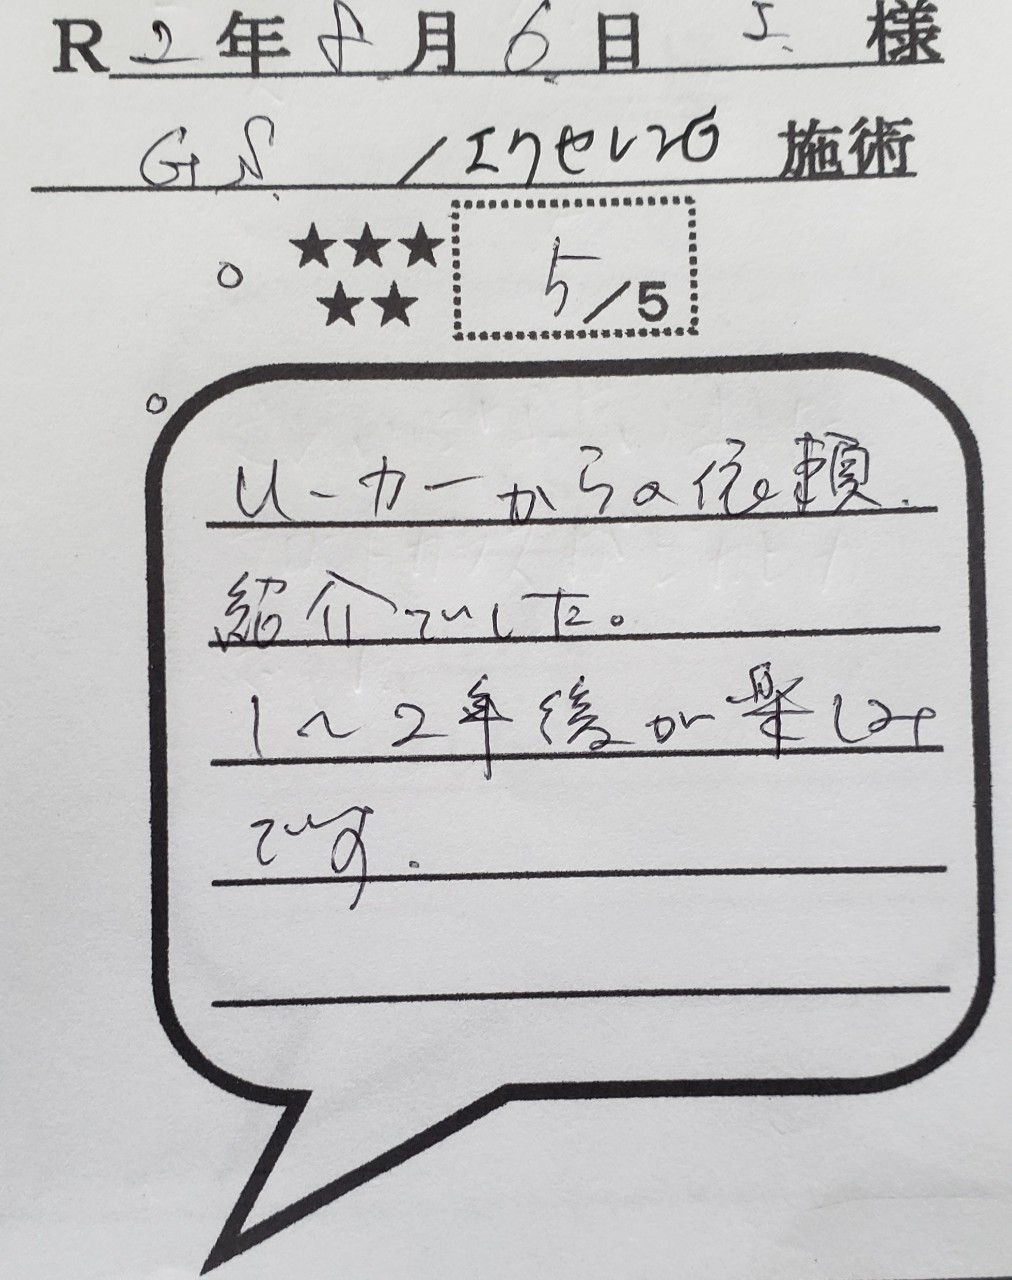 R2年8月6日 I. 様
GS / 施術
★★★
★★
5/5
U-カーからの依頼.
紹介でした。
1〜2年後が楽しみ
です.